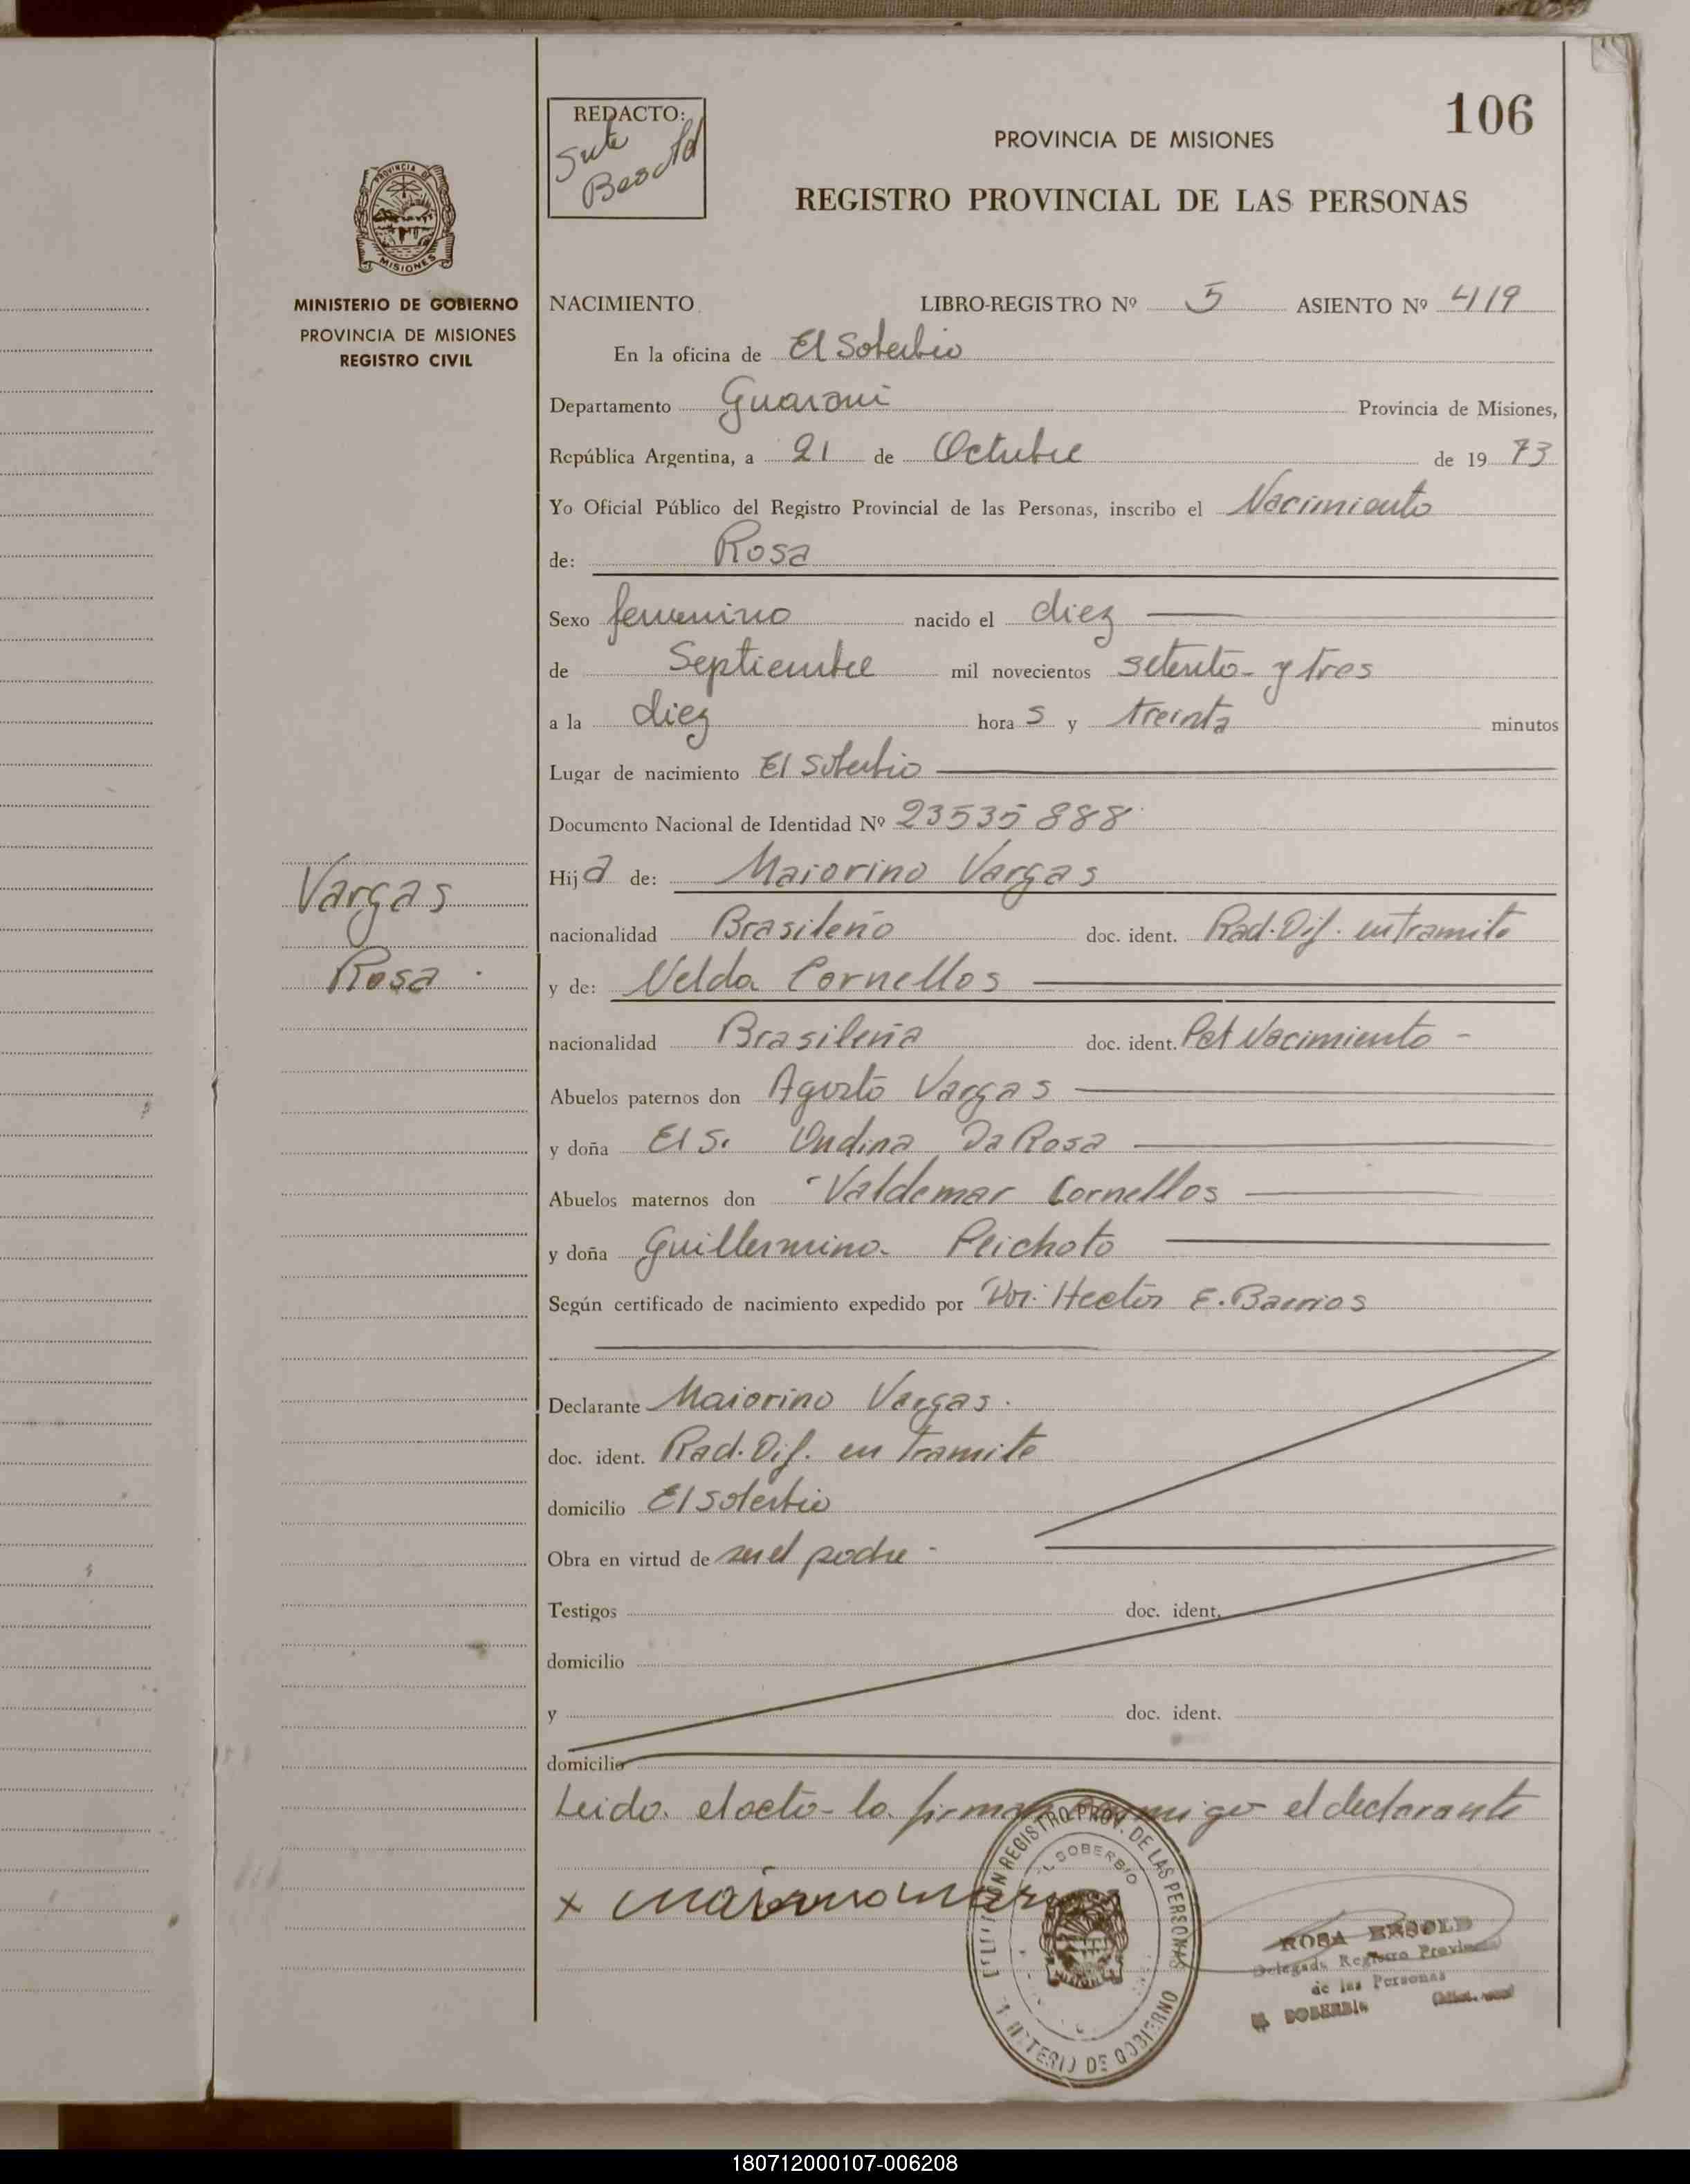 106
REDACTO:
PROVINCIA DE MISIONES
REGISTRO PROVINCIAL DE LAS PERSONAS
PROVINCIA DE
MISIONES
MINISTERIO DE GOBIERNO
PROVINCIA DE MISIONES
REGISTRO CIVIL
NACIMIENTO LIBRO-REGISTRO Nº 5 ASIENTO Nº 419
En la oficina de El Soberbio
Departamento Guarani Provincia de Misiones,
República Argentina, a 21 de Octubre de 19 73
Yo Oficial Público del Registro Provincial de las Personas, inscribo el Nacimiento
de: Rosa
Sexo femenino nacido el diez
de Septiembre mil novecientos setenta y tres
a la diez hora s y treinta minutos
Lugar de nacimiento El Soberbio
Documento Nacional de Identidad Nº 23535888
Vargas
Rosa
Hij a de: Maiorino Vargas
nacionalidad Brasileño doc. ident. Rad. Dif. en tramite
y de: Nelda Cornellos
nacionalidad Brasileña doc. ident. Nacimiento
Abuelos paternos don Agusto Vargas
y doña Ondina Da Rosa
Abuelos maternos don Valdemar Cornellos
y doña Guillermina Peichoto
Según certificado de nacimiento expedido por Hector E. Barrios
Declarante Maiorino Vargas.
doc. ident. Rad. Dif. en Tramite
domicilio El Soberbio
Obra en virtud de ser el padre
Testigos doc. ident.
domicilio
y doc. ident.
domicilio
Leida el acta la firman conmigo el declarante
REGISTRO PROV. DE LAS PERSONAS
MINISTERIO DE GOBIERNO
EL SOBERBIO
ROSA BESOLD
Delegada Registro Provincial
de las Personas
EL SOBERBIO
180712000107-006208